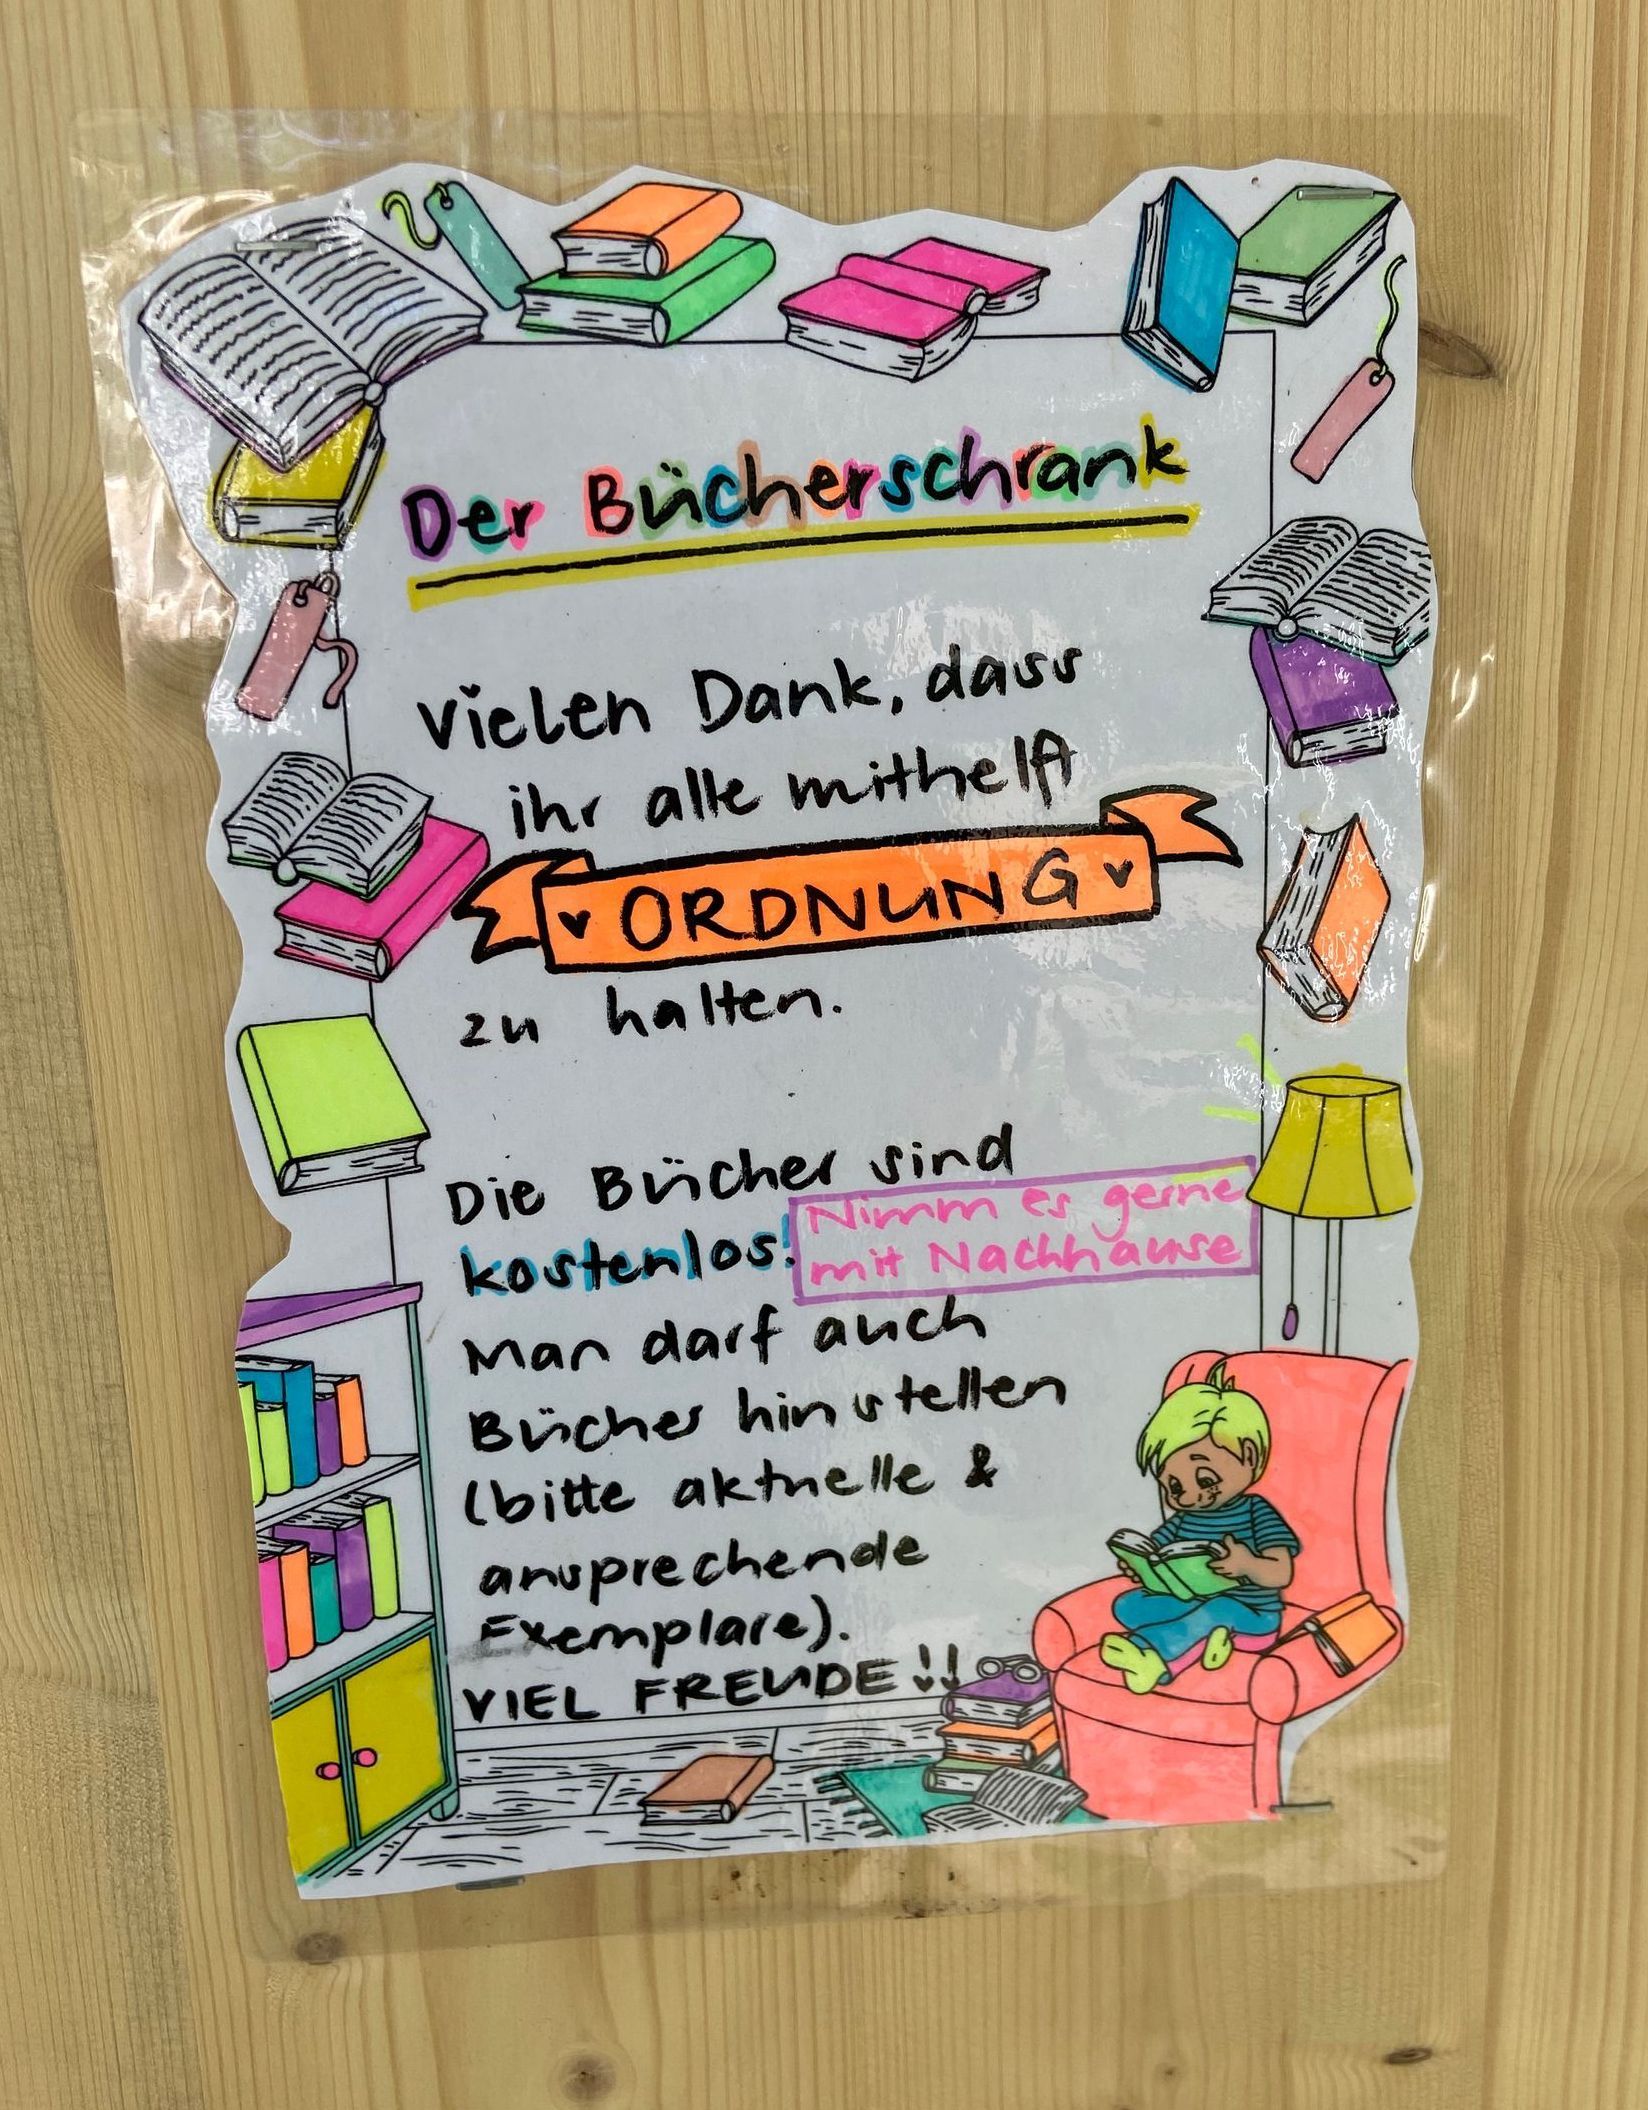 Der Bücherschrank
Vielen Dank, dass
ihr alle mithelft
ORDNUNG
zu halten.
Die Bücher sind
kostenlos!
Nimm es gerne
mit Nachhause
Man darf auch
Bücher hinstellen
(bitte aktuelle &
ansprechende
Exemplare).
VIEL FREUDE!!